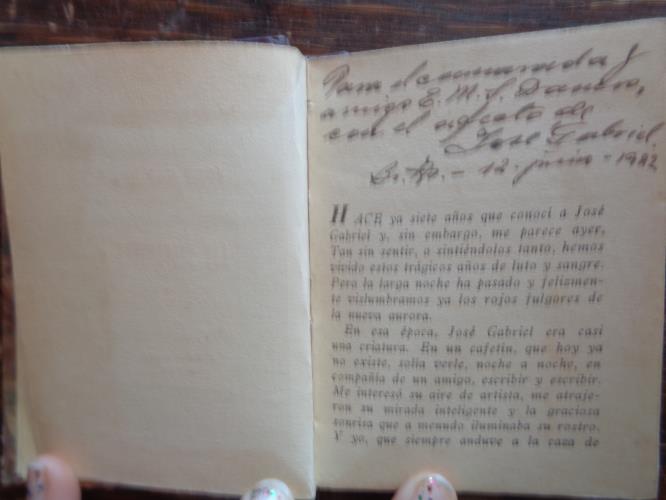 Para el camarada y
amigo E. M. S. Danero,
con el afecto de
José Gabriel.
Bs. As. - 12 junio - 1922
HACE ya siete años que conocí a José
Gabriel y, sin embargo, me parece ayer.
Tan sin sentir, o sintiéndolos tanto, hemos
vivido estos trágicos años de luto y sangre.
Pero la larga noche ha pasado y felizmen-
te vislumbramos ya los rojos fulgores de
la nueva aurora.
En esa época, José Gabriel era casi
una criatura. En un cafetín, que hoy ya
no existe, solía verle, noche a noche, en
compañía de un amigo, escribir y escribir.
Me interesó su aire de artista, me atraje-
ron su mirada inteligente y la graciosa
sonrisa que a menudo iluminaba su rostro.
Y yo, que siempre anduve a la caza de